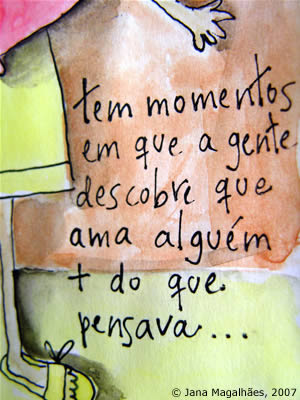 tem momentos
em que a gente
descobre que
ama alguém
+ do que
pensava...
© Jana Magalhães, 2007